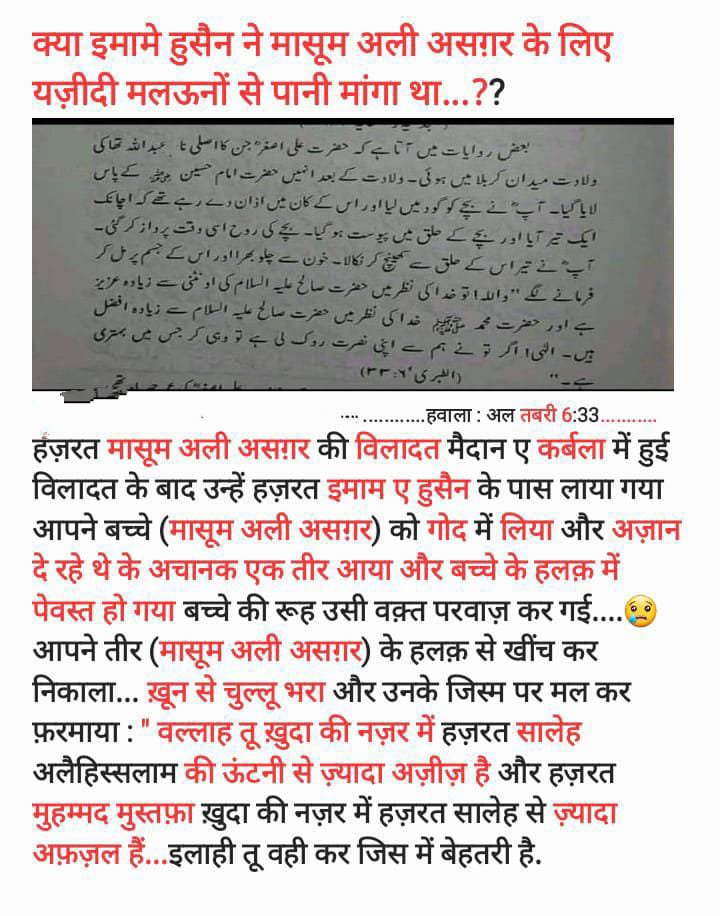 क्या इमामे हुसैन ने मासूम अली असग़र के लिए
यज़ीदी मलऊनों से पानी मांगा था...??
بعض روایات میں آتا ہے کہ حضرت علی اصغرؓ جن کا اصلی نام عبداللہ تھا کی
ولادت میدان کربلا میں ہوئی۔ ولادت کے بعد انہیں حضرت امام حسین کے پاس
لایا گیا۔ آپؓ نے بچے کو گود میں لیا اور اس کے کان میں اذان دے رہے تھے کہ اچانک
ایک تیر آیا اور بچے کے حلق میں پیوست ہو گیا۔ بچے کی روح اسی وقت پرواز کر گئی۔
آپؓ نے تیر اس کے حلق سے کھینچ کر نکالا۔ خون سے چلو بھرا اور اس کے جسم پر مل کر
فرمانے لگے "واللہ! تو خدا کی نظر میں حضرت صالح علیہ السلام کی اونٹنی سے زیادہ عزیز
ہے اور حضرت محمد ﷺ خدا کی نظر میں حضرت صالح علیہ السلام سے زیادہ افضل
ہیں۔ الٰہی! اگر تو نے ہم سے اپنی نصرت روک لی ہے تو وہی کر جس میں بہتری
ہے۔" (الطبری ٦:٣٣)
.... ............हवाला : अल तबरी 6:33...........
हज़रत मासूम अली असग़र की विलादत मैदान ए कर्बला में हुई
विलादत के बाद उन्हें हज़रत इमाम ए हुसैन के पास लाया गया
आपने बच्चे (मासूम अली असग़र) को गोद में लिया और अज़ान
दे रहे थे के अचानक एक तीर आया और बच्चे के हलक़ में
पेवस्त हो गया बच्चे की रूह उसी वक़्त परवाज़ कर गई....😢
आपने तीर (मासूम अली असग़र) के हलक़ से खींच कर
निकाला... ख़ून से चुल्लू भरा और उनके जिस्म पर मल कर
फ़रमाया : " वल्लाह तू ख़ुदा की नज़र में हज़रत सालेह
अलैहिस्सलाम की ऊंटनी से ज़्यादा अज़ीज़ है और हज़रत
मुहम्मद मुस्तफ़ा ख़ुदा की नज़र में हज़रत सालेह से ज़्यादा
अफ़ज़ल हैं...इलाही तू वही कर जिस में बेहतरी है.